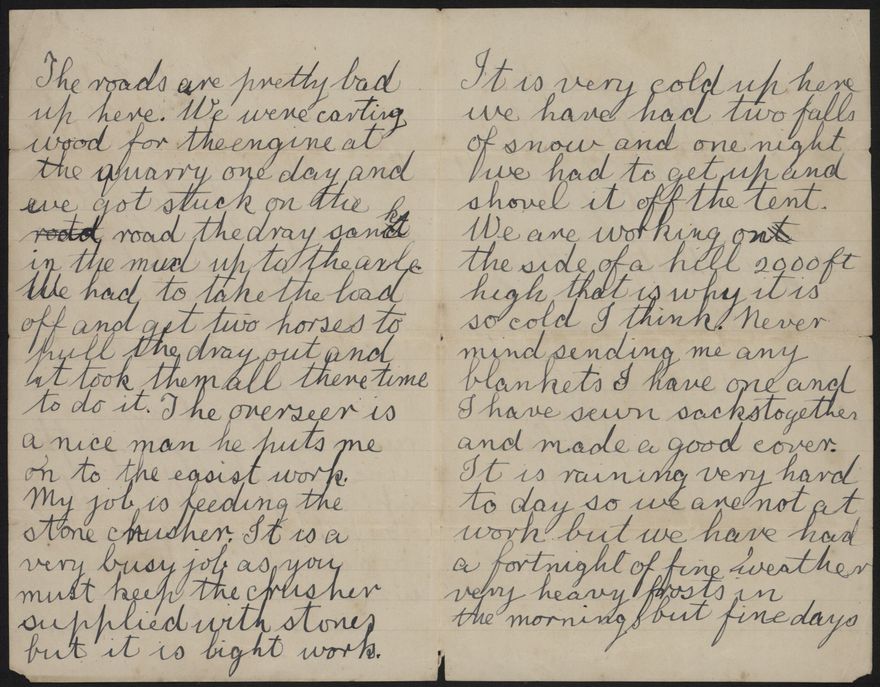 The roads are pretty bad
up here. We were carting
wood for the engine at
the quarry one day and
we got stuck on the
road road the dray sank
in the mud up to the axle
We had to take the load
off and get two horses to
pull the dray out and
it took them all there time
to do it. The overseer is
a nice man he puts me
on to the easist work.
My job is feeding the
stone crusher. It is a
very busy job as you
must keep the crusher
supplied with stones
but it is light work.
It is very cold up here
we have had two falls
of snow and one night
we had to get up and
shovel it off the tent.
We are working on
the side of a hill 2000ft
high that is why it is
so cold I think. Never
mind sending me any
blankets I have one and
I have sewn sacks together
and made a good cover.
It is raining very hard
to day so we are not at
work but we have had
a fortnight of fine weather
very heavy frosts in
the mornings but fine days